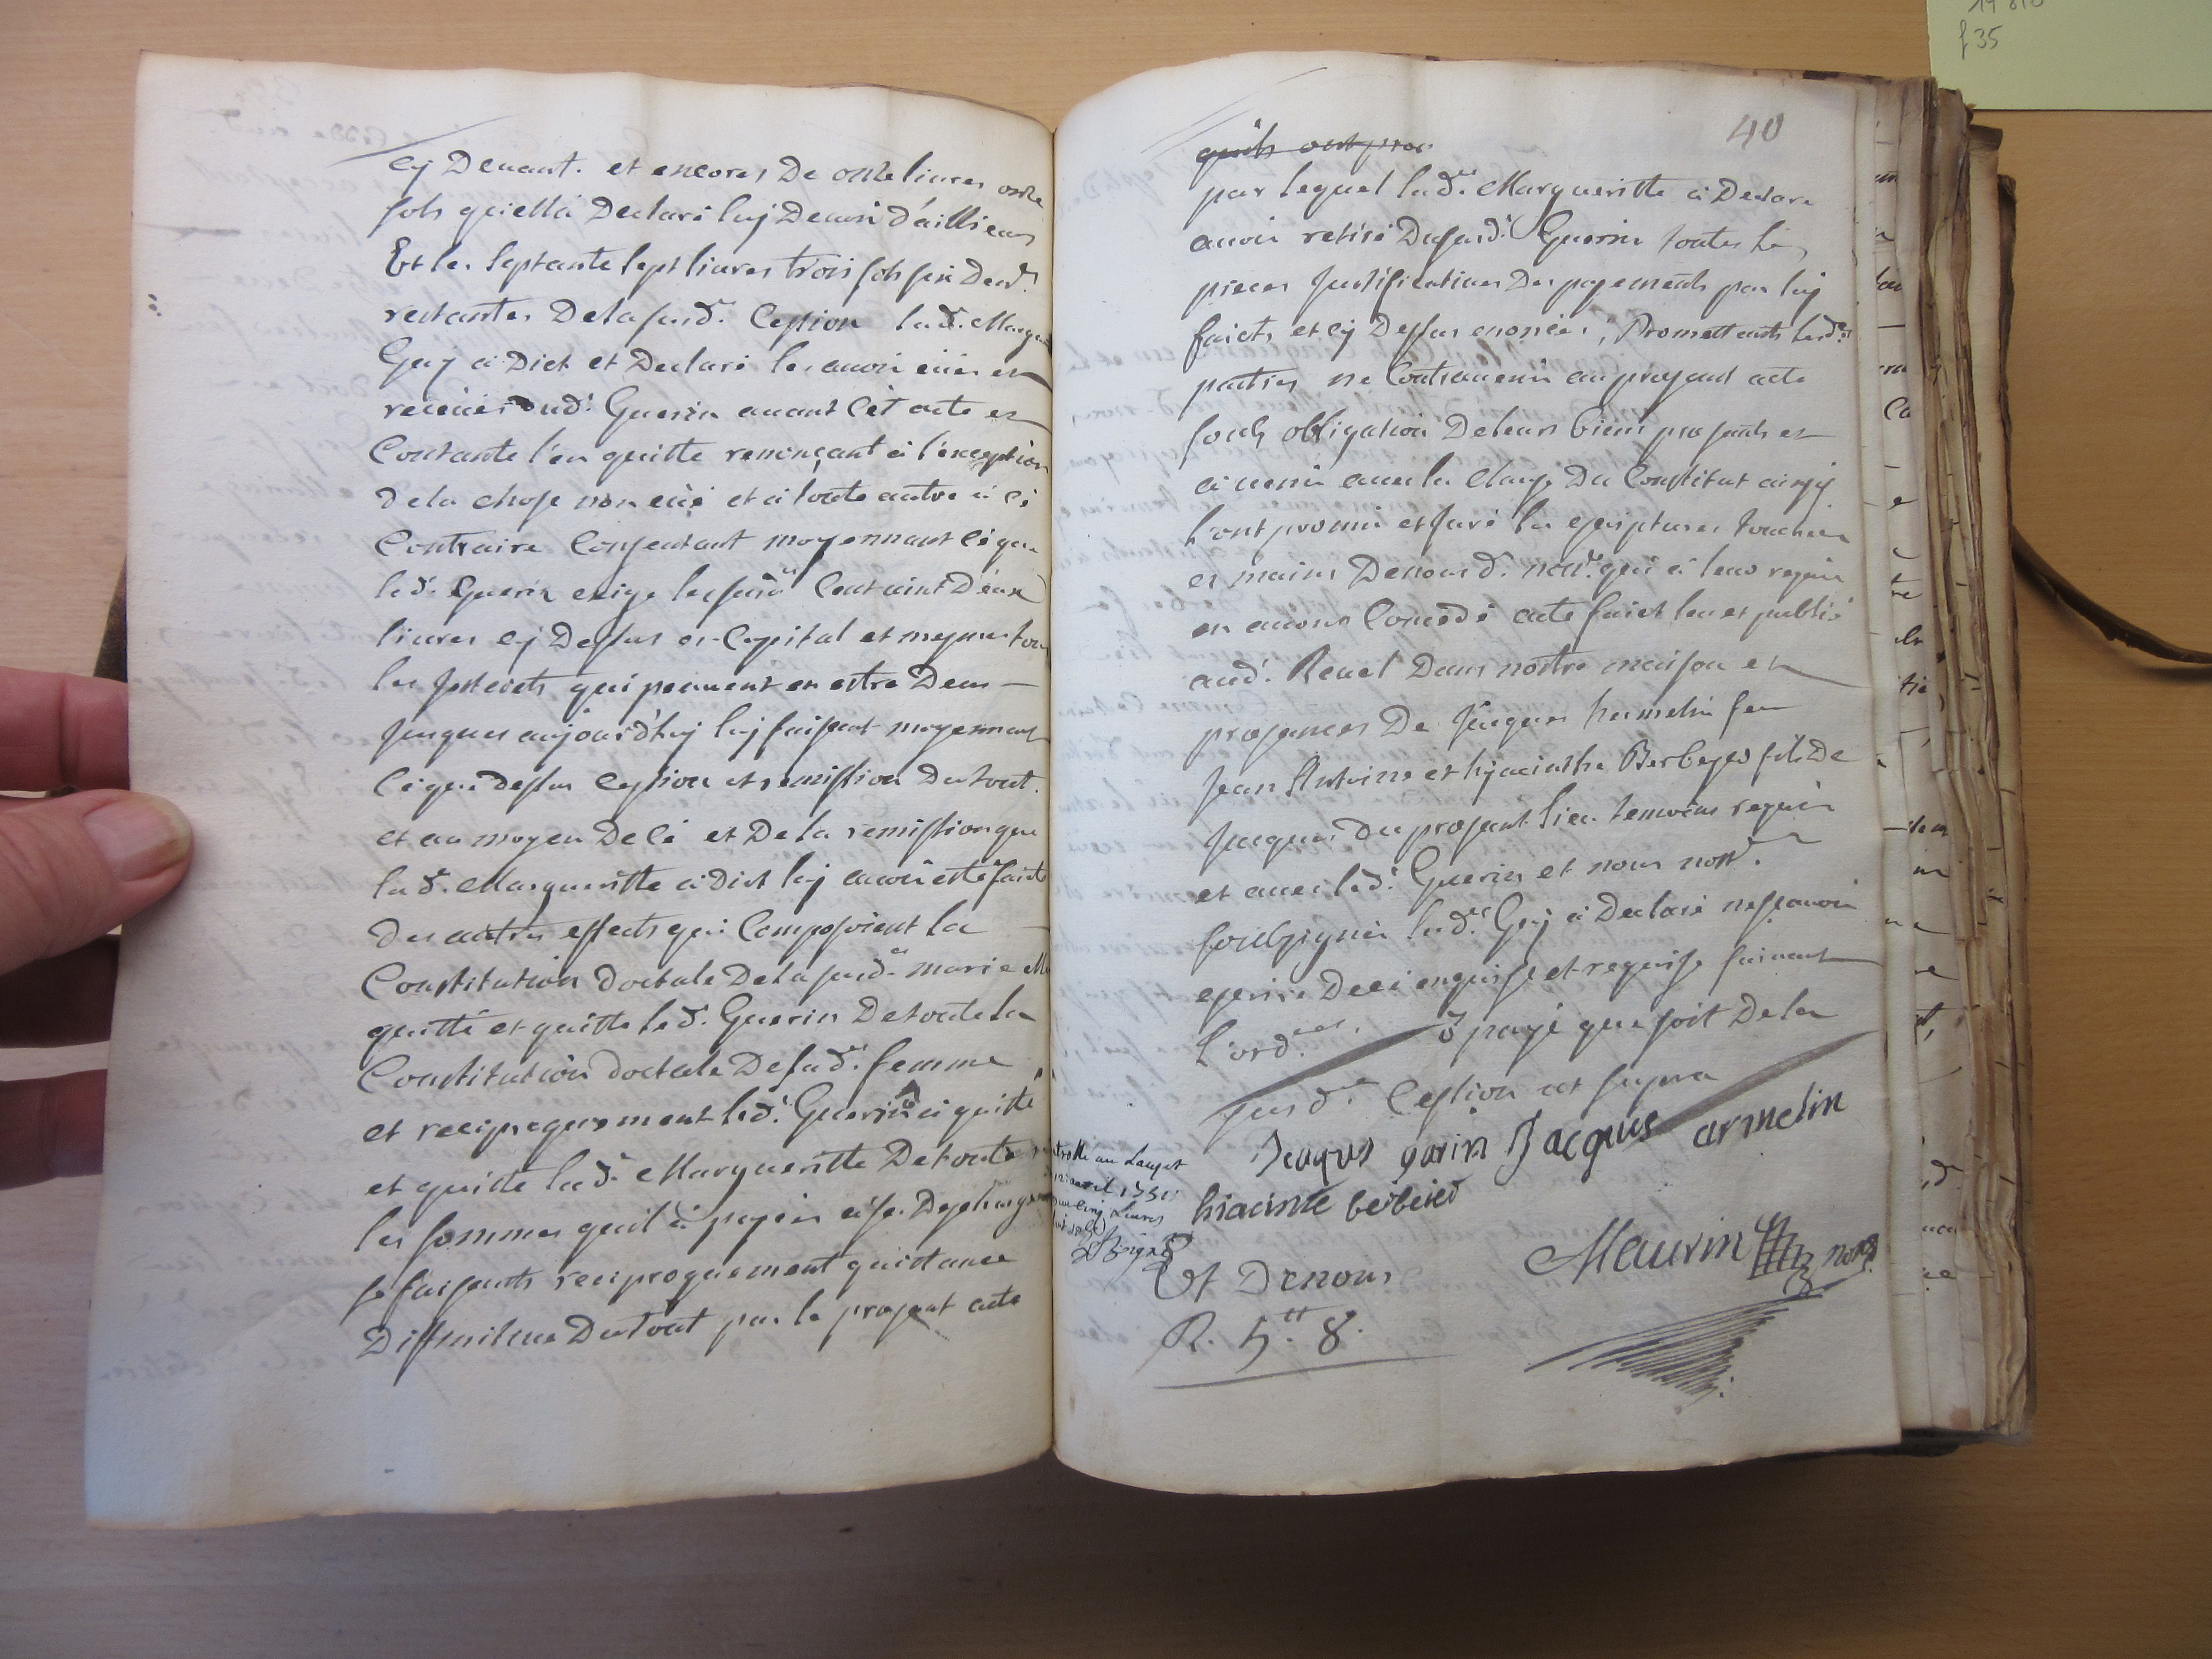 cy Devant. et encores De onze livres onze
sols qu'ella Declaré luy Devoir d'allieurs
Et les septante sept livres trois sols six Den.rs
restantes Dela susd.e Cession lad.e Margte
Guy à Dict et Declaré les avoir eües et
receües dud.t Guerin avant cet acte et
Contante l'en quitte renonçant à l'exception
dela chose non eüe et à toute autre à cé
Contraire Consentant moyennant cé que
led.t Guerin exige les susd.es Cent vint Deux
livres cy Dessus en Capital et mesmes tous
les Interets qui peuvent en estre Deus
Jusques aujourd'huy luy faisant moyennant
cé que dessus Cession et remission du tout.
et au moyen De cé et De la remission que
lad.e Margueritte à dict luy avoir esté faicte
Des autres effects qui Composoient la
Constitution doctale De la susd.e marie
quitté et quitte led.t Guerin De toute la
Constitution doctale De sad.e femme
et reciproquement led.t Guerin à quitté
et quitte lad.e Margueritte De toutes
les sommes qu'il à payées à sa Descharge
se faisants reciproquement quictance
Diffinitive Du tout par le present acte
40
qu'ils ont pro
par lequel lad.e Margueritte à Declaré
avoir retiré Dususd.t Guerin toutes les
pieces Justificatives Des payements par luy
faicts et cy Dessus enoncés, Promettants lesd.es
parties ne Contrevenir au present acte
soubz obligation De leurs biens presents et
à venir avec la Clause Du Constitut ainsy
l'ont promis et Juré les escriptures touchées
es mains De nousd. not.re qui à leur requis
en avons Concedé acte faict leu et publié
aud.t Revel Dans nostre maison et
presences De Jacques hermelin feu
Jean Antoine et hyacinthe Berbeyer fils De
Jacques du present lieu temoins requis
et avec led.t Guerin et nous not.re
soubsignés lad.e Guy à Declaré ne sçavoir
escrire De ce enquise et requise suivant
l'ord.ce payé que soit De la
susd.e Cession ut supra
Jaques garin Jacques armelin
hiacinte beibeied
avril 1751
cinq Livres
Et Denous
Maurin not.re
R. 5.tt 8.
f 35